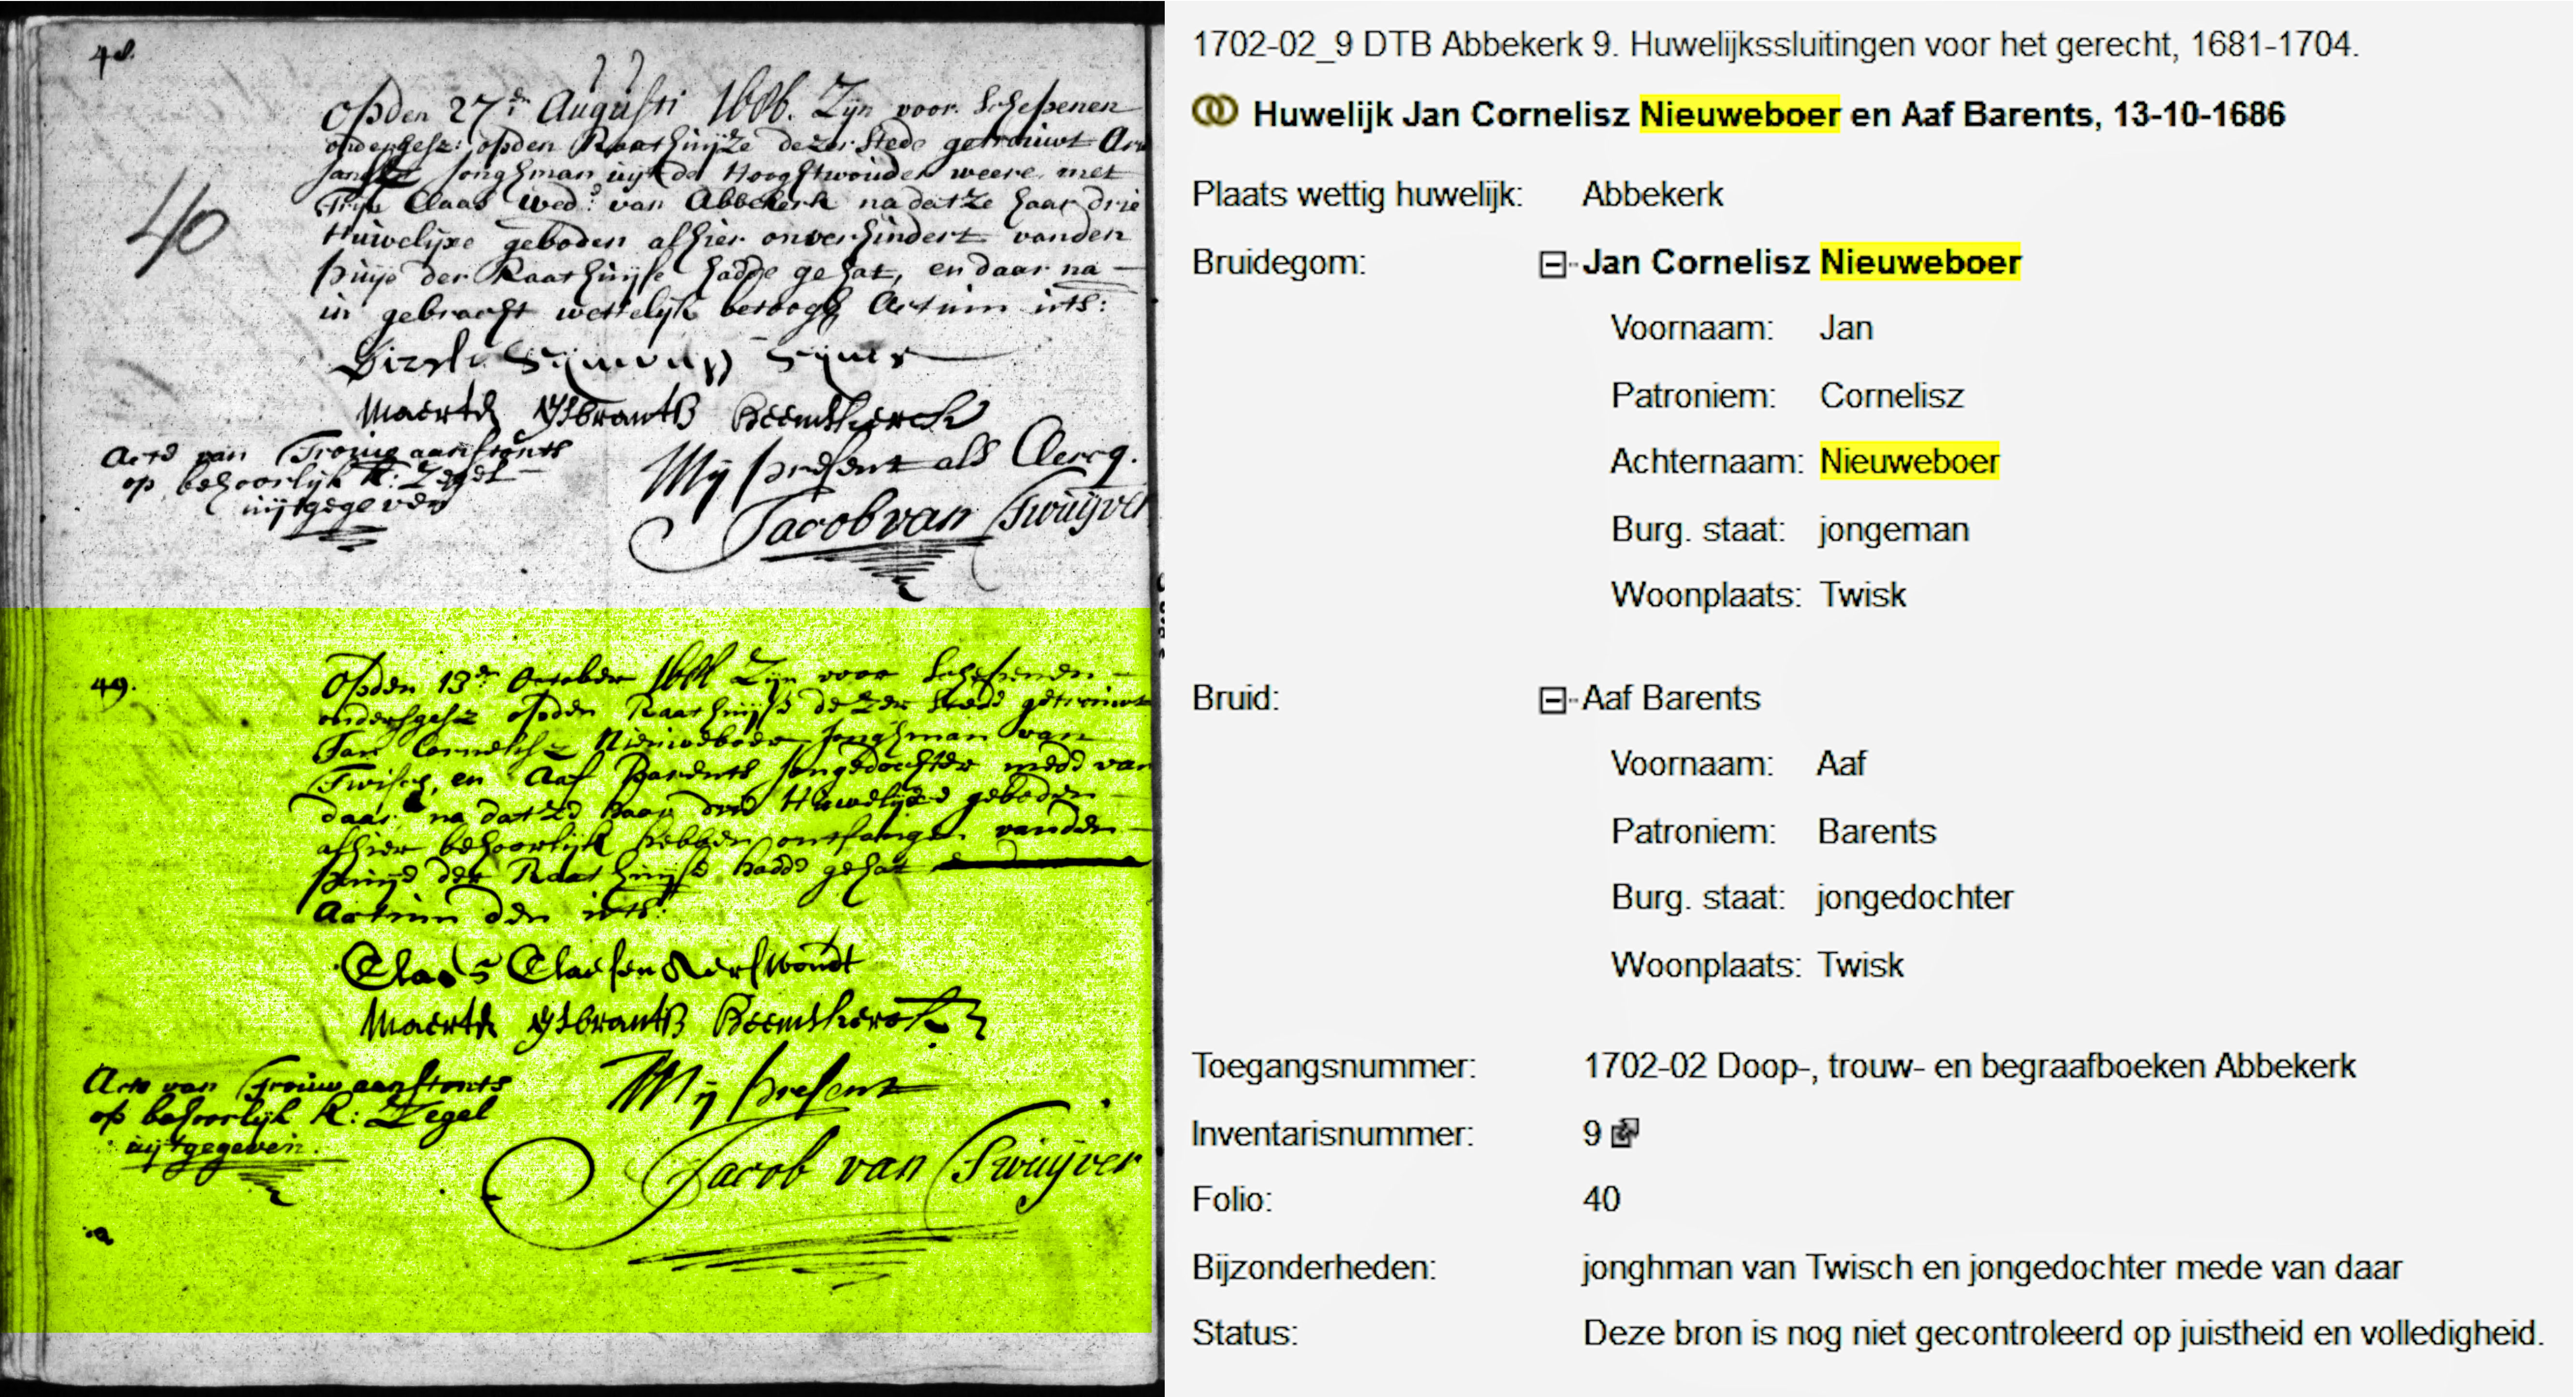 48.
40
Opden 27.en Augusti 1686. Zyn voor Schepenen
ondergesz: opden Raathuijze dezer Stede getrouwt
Jonghman uijt de Hooghtwouder weere met
Trijn Claas Wed.e van Abbekerk nadatze haar drie
Huwelijxe geboden alhier onverhindert vanden
puije der Raathuijse hadde gehat, en daar na
in gebracht wettelijk betoogh Actum uts:
Maertn IJsbrantsz Heemskerck
Mij present als Clercq.
Jacob van Twuijver
Acte van Trouw aanstonts
op behoorlijk k: Zegel
uijtgegeven
49.
Opden 13.en October 1686 Zyn voor Schepenen
ondergesz opden Raathuijse dezer Stede getrouwt
Jan Cornelisz Nieuweboer Jonghman van
Twisch, en Aaf Barents Jongedochter mede van
daar na datze haar drie Huwelijxe geboden
alhier behoorlijk hebben ontfangen vanden
puije der Raathuijse hadde gehat
Actum den uts.
Claas Claesen
Maertn IJsbrantsz Heemskerck
Mij present
Jacob van Twuijver
Acte van Trouw aanstonts
op behoorlijk k: Zegel
uijtgegeven.
1702-02_9 DTB Abbekerk 9. Huwelijkssluitingen voor het gerecht, 1681-1704.
Huwelijk Jan Cornelisz Nieuweboer en Aaf Barents, 13-10-1686
Plaats wettig huwelijk: Abbekerk
Bruidegom: Jan Cornelisz Nieuweboer
Voornaam: Jan
Patroniem: Cornelisz
Achternaam: Nieuweboer
Burg. staat: jongeman
Woonplaats: Twisk
Bruid: Aaf Barents
Voornaam: Aaf
Patroniem: Barents
Burg. staat: jongedochter
Woonplaats: Twisk
Toegangsnummer: 1702-02 Doop-, trouw- en begraafboeken Abbekerk
Inventarisnummer: 9
Folio: 40
Bijzonderheden: jonghman van Twisch en jongedochter mede van daar
Status: Deze bron is nog niet gecontroleerd op juistheid en volledigheid.